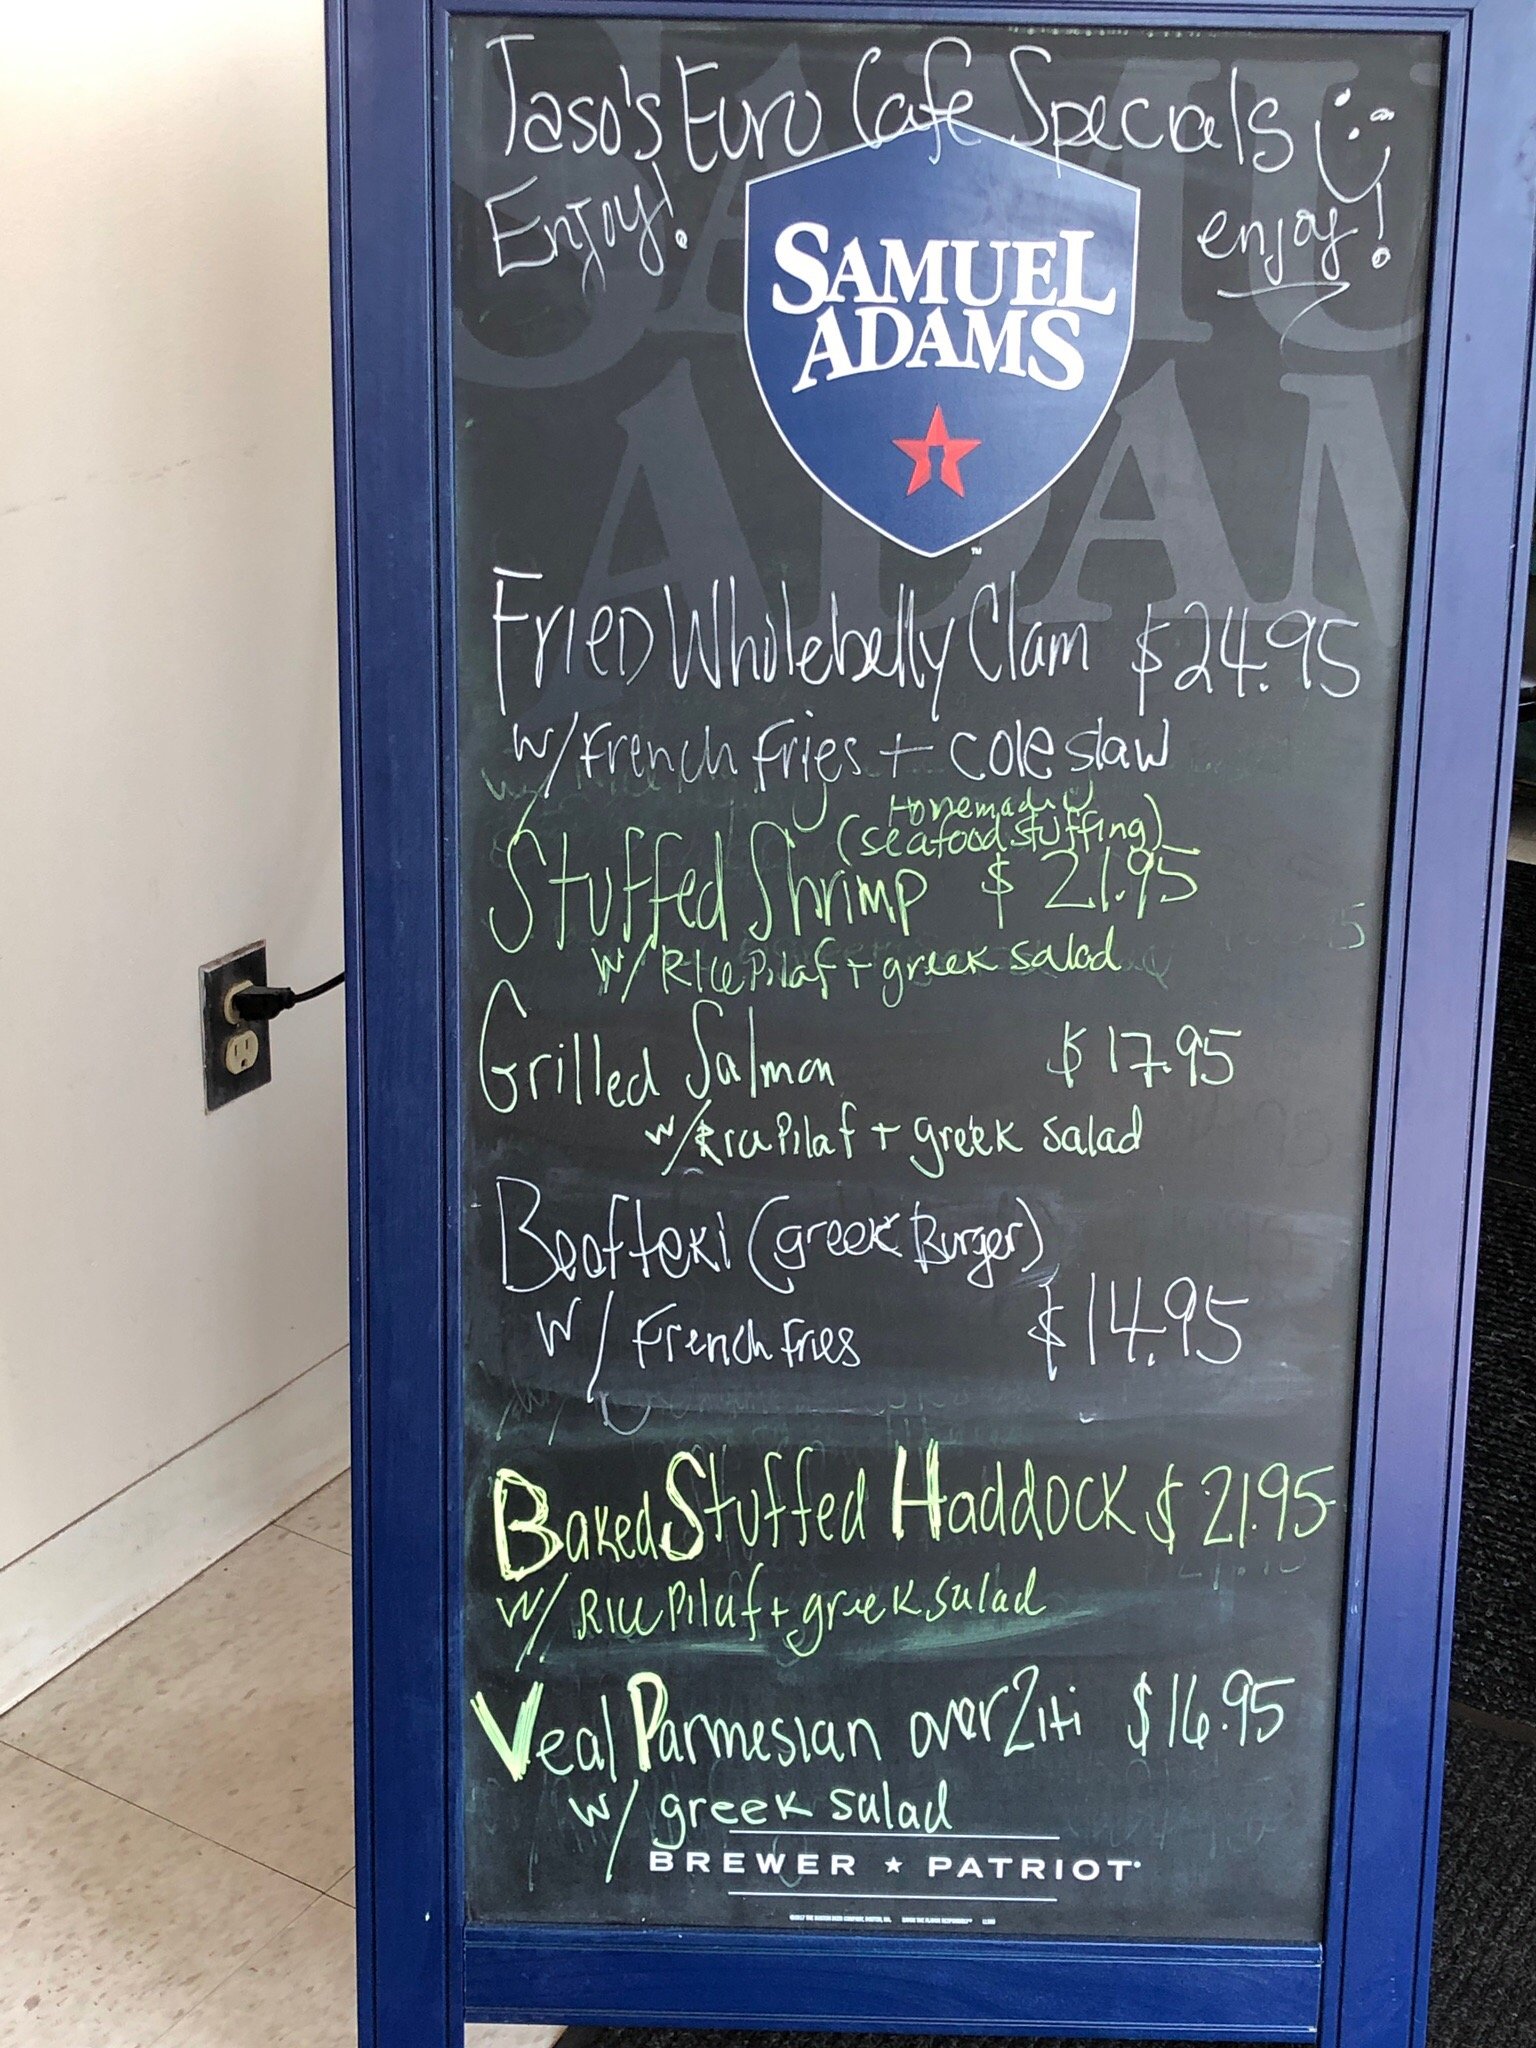 Taso's Euro Cafe Specials
Enjoy!
enjoy!
SAMUEL
ADAMS
™
FrieD Wholebelly Clam $24.95
w/ French Fries + cole slaw
Homemade
(seafood stuffing)
Stuffed Shrimp $21.95
w/ Rice Pilaf + greek salad
Grilled Salmon $17.95
w/ Rice Pilaf + greek salad
Beefteki (greek Burger)
w/ French Fries $14.95
Baked Stuffed Haddock $21.95
w/ Rice Pilaf + greek salad
Veal Parmesian over Ziti $16.95
w/ greek salad
BREWER ★ PATRIOT